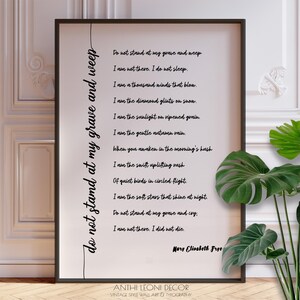 do not stand at my grave and weep
Do not stand at my grave and weep
I am not there. I do not sleep.
I am a thousand winds that blow.
I am the diamond glints on snow.
I am the sunlight on ripened grain.
I am the gentle autumn rain.
When you awaken in the morning's hush
I am the swift uplifting rush
Of quiet birds in circled flight.
I am the soft stars that shine at night.
Do not stand at my grave and cry,
I am not there. I did not die.
Mary Elizabeth Frye
ANTHI LEONI DECOR